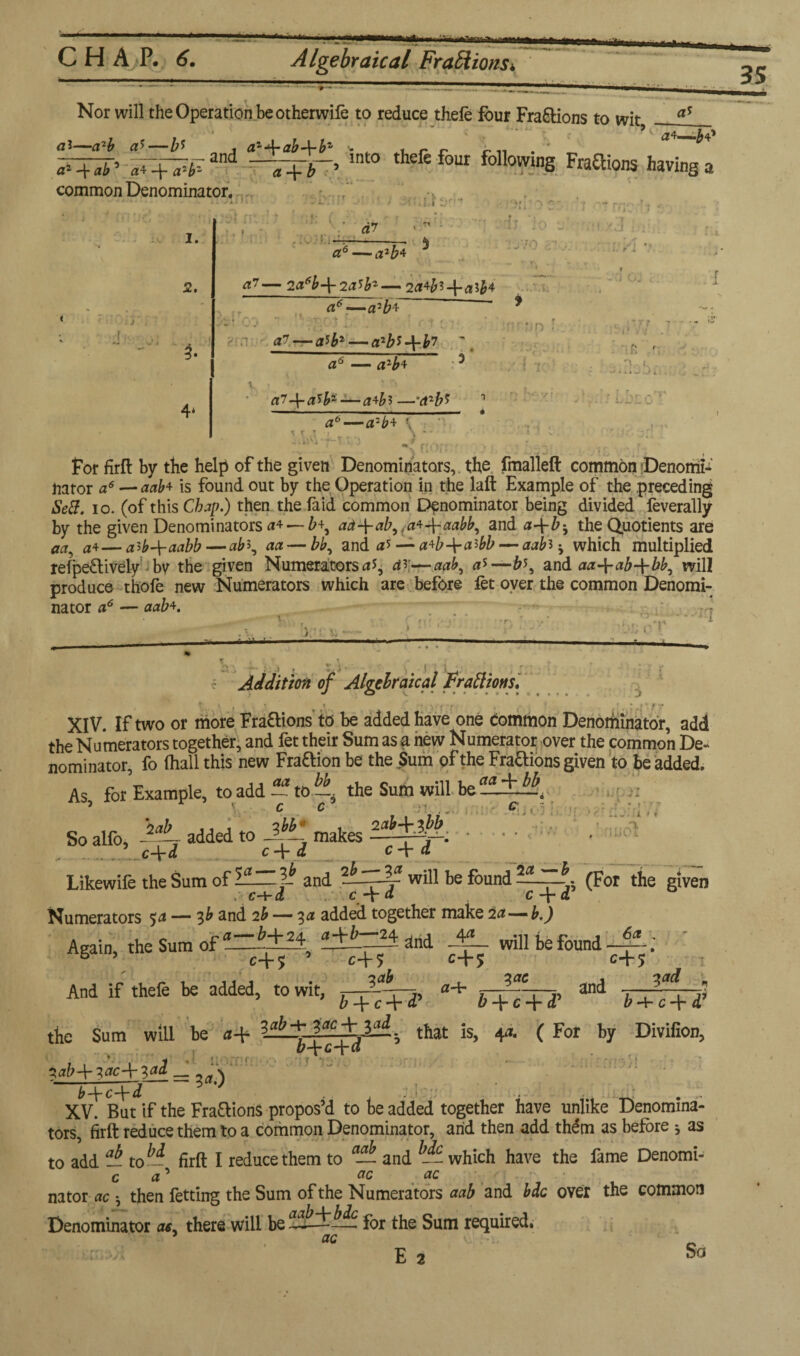 CHAP. 6. Algebraical Fractions. 35
Nor will the Operation be otherwiſe to reduce theſe four Fractions to wit, a⁵/(a⁴—b⁴),
(a³—a²b)/(a²+ab), (a⁵—b⁵)/(a⁴+a²b²) and (a²+ab+b²)/(a+b), into theſe four following Fractions having a
common Denominator.
1. a⁷/(a⁶—a²b⁴),
2. (a⁷—2a⁶b+2a⁵b²—2a⁴b³+a³b⁴)/(a⁶—a²b⁴),
3. (a⁷—a⁵b²—a²b⁵+b⁷)/(a⁶—a²b⁴),
4. (a⁷+a⁵b²—a⁴b³—a²b⁵)/(a⁶—a²b⁴).
For firſt by the help of the given Denominators, the ſmalleſt common Denomi-
nator a⁶—aab⁴ is found out by the Operation in the laſt Example of the preceding
Sect. 10. (of this Chap.) then the ſaid common Denominator being divided ſeverally
by the given Denominators a⁴—b⁴, aa+ab, a⁴+aabb, and a+b; the Quotients are
aa, a⁴—a³b+aabb—ab³, aa—bb, and a⁵—a⁴b+a³bb—aab³; which multiplied
reſpectively by the given Numerators a⁵, a³—aab, a⁵—b⁵, and aa+ab+bb, will
produce thoſe new Numerators which are before ſet over the common Denomi-
nator a⁶—aab⁴.
Addition of Algebraical Fractions.
XIV. If two or more Fractions to be added have one common Denominator, add
the Numerators together, and ſet their Sum as a new Numerator over the common De-
nominator, ſo ſhall this new Fraction be the Sum of the Fractions given to be added.
As, for Example, to add aa/c to bb/c, the Sum will be (aa+bb)/c.
So alſo, 2ab/(c+d) added to 3bb/(c+d) makes (2ab+3bb)/(c+d).
Likewiſe the Sum of (5a—3b)/(c+d) and (2b—3a)/(c+d) will be found (2a—b)/(c+d); (For the given
Numerators 5a—3b and 2b—3a added together make 2a—b.)
Again, the Sum of (a—b+24)/(c+5), (a+b—24)/(c+5) and 4a/(c+5) will be found 6a/(c+5);
And if theſe be added, to wit, 3ab/(b+c+d), a+ 3ac/(b+c+d), and 3ad/(b+c+d),
the Sum will be a+ (3ab+3ac+3ad)/(b+c+d); that is, 4a. (For by Diviſion,
(3ab+3ac+3ad)/(b+c+d) = 3a.)
XV. But if the Fractions propos'd to be added together have unlike Denomina-
tors, firſt reduce them to a common Denominator, and then add them as before; as
to add ab/c to bd/a, firſt I reduce them to aab/ac and bdc/ac which have the ſame Denomi-
nator ac; then ſetting the Sum of the Numerators aab and bdc over the common
Denominator ac, there will be (aab+bdc)/ac for the Sum required.
E 2 So